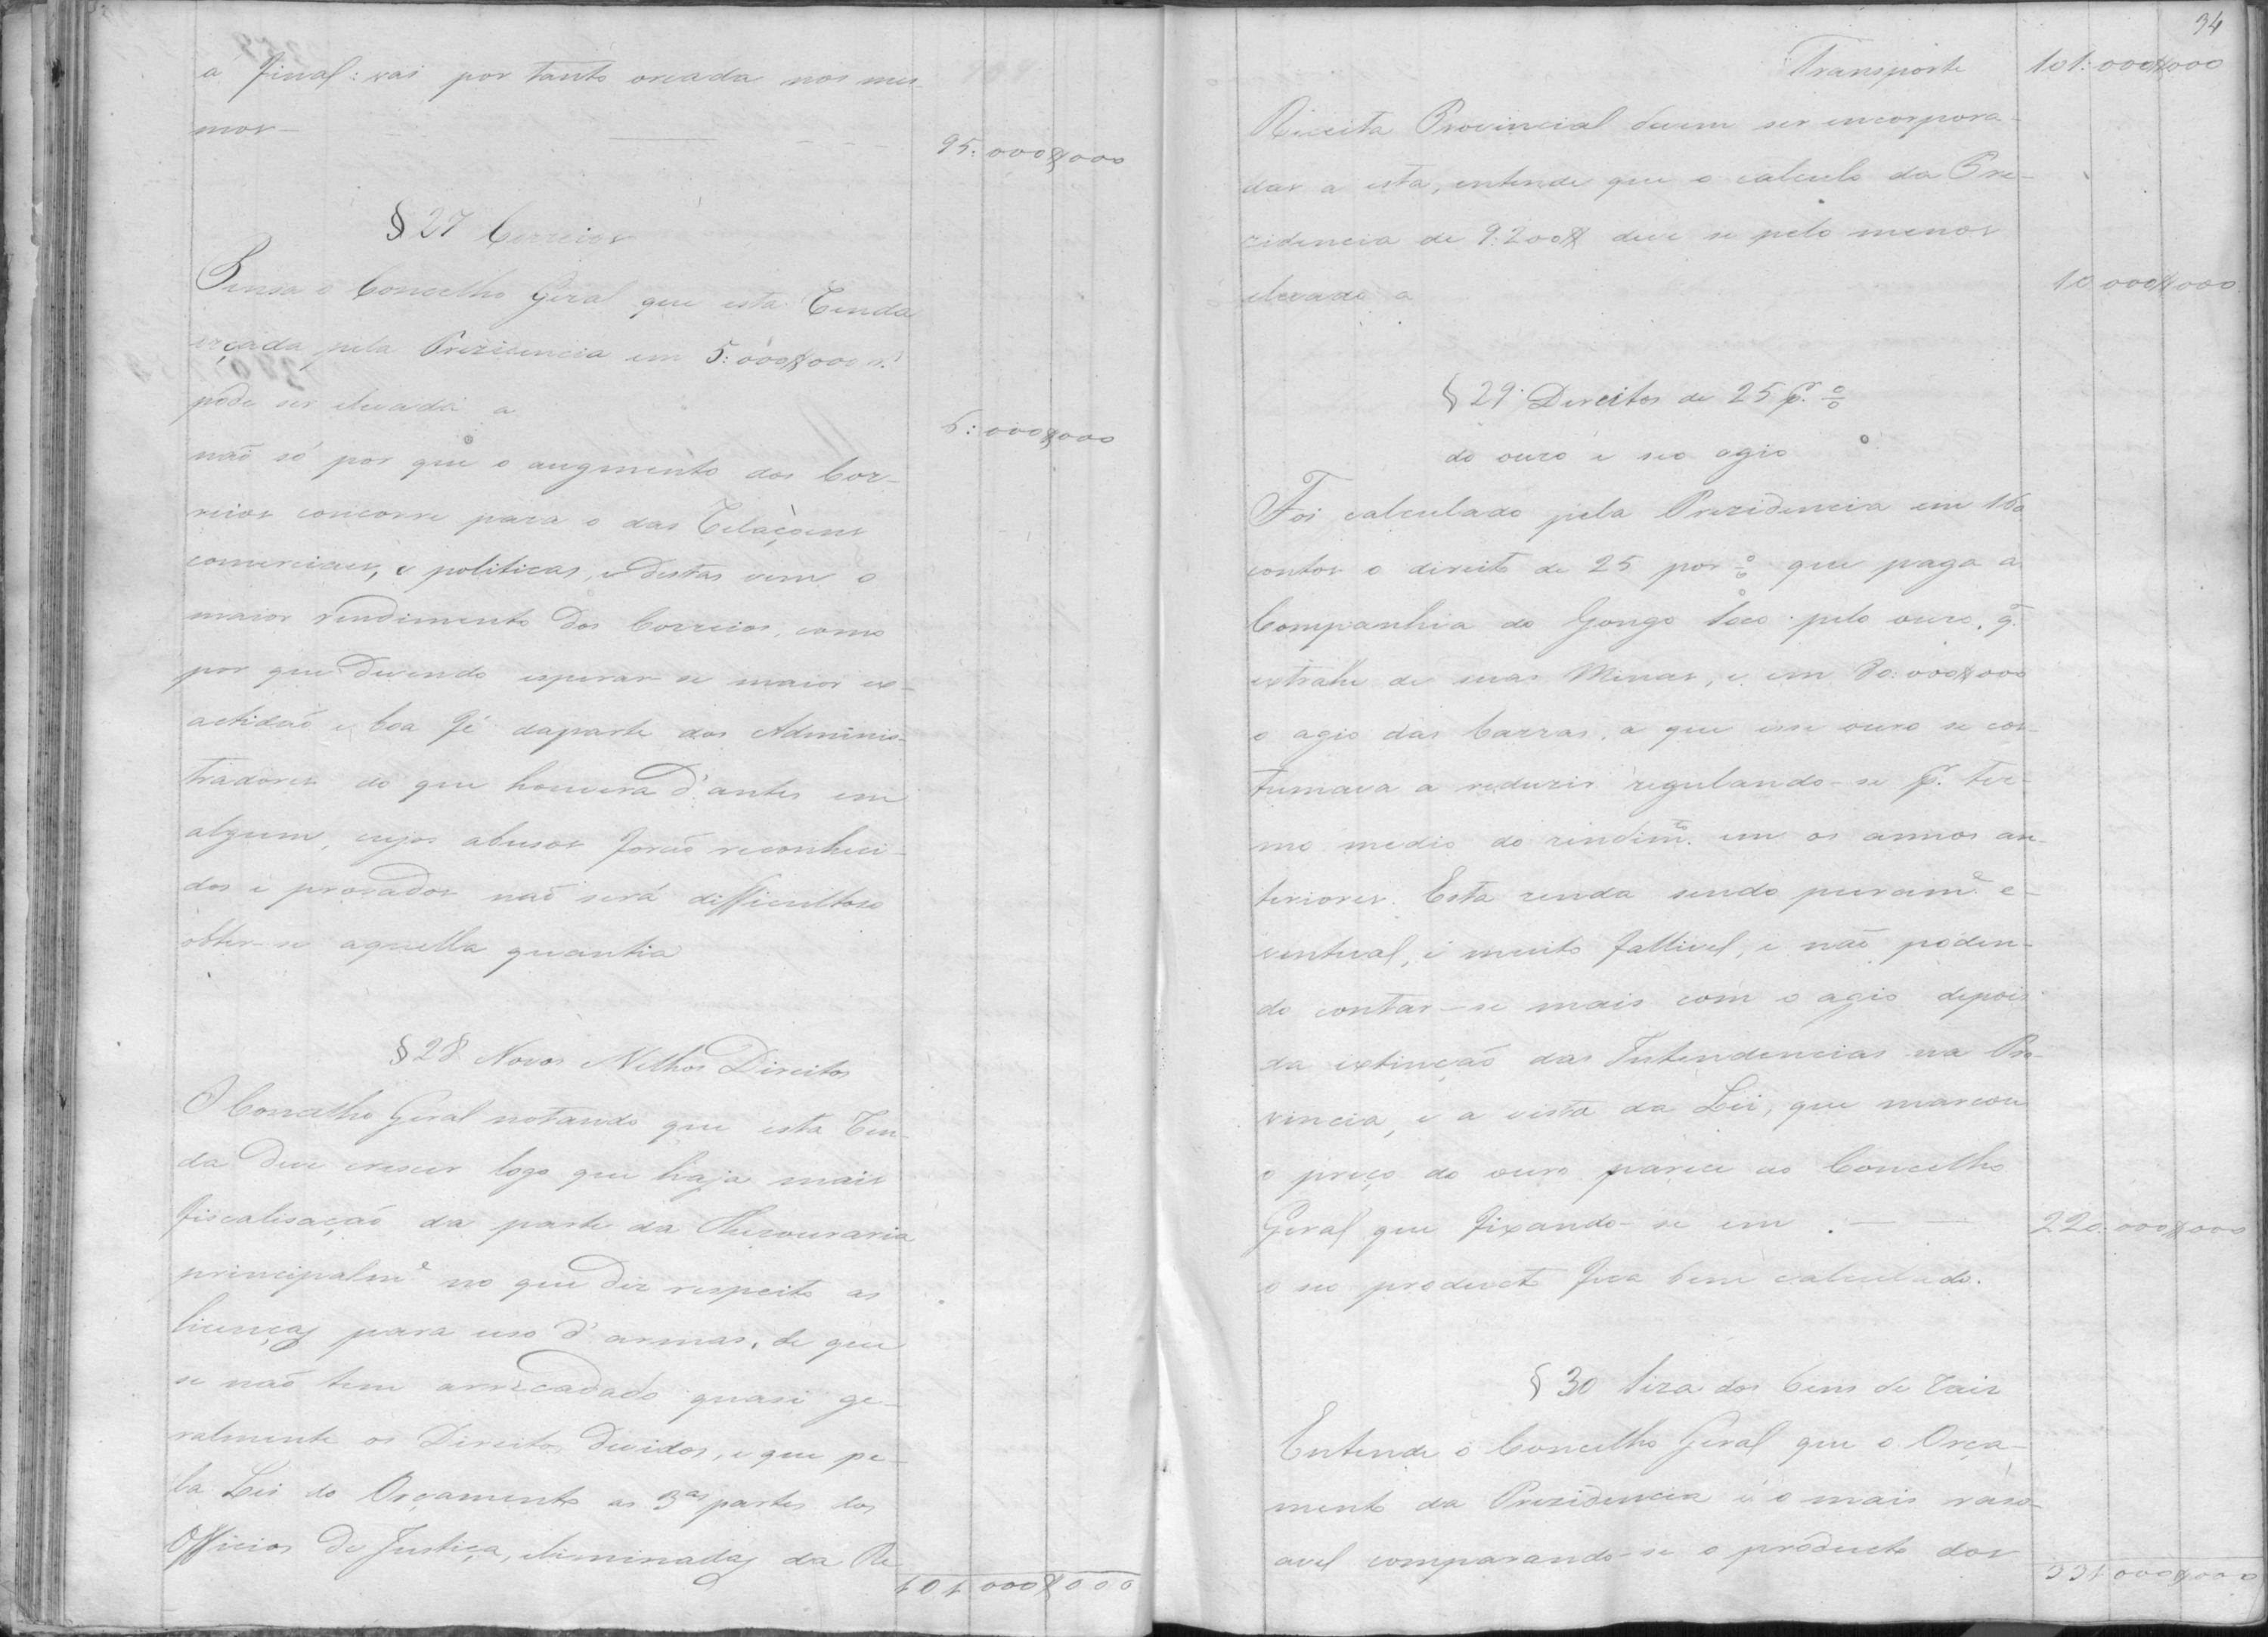 a final: vai por tanto orcada nos mes
mos — 95:000$000
§ 27 Correios
Pensa o Concelho Geral que esta Renda
orçada pela Prezidencia em 5:000$000 r.s
pode ser elevada a 6:000$000
não só por que o augmento dos Cor-
reios concorre para o das Relaçoens
comerciaes, e politicas, e destas vem o
maior rendimento dos Correios, como
por que devendo esperar-se maior ex-
actidão e boa fé daparte dos Adminis-
tradores do que houvera d'antes em
algum, cujos abusos forão reconheci-
dos e provados não será difficultoso
obter-se aquella quantia
§ 28 Novos e Velhos Direitos
O Concelho Geral notando que esta Ren-
da deve crescer logo que haja mais
fiscalisação da parte da Thezouraria
principalm.e no que diz respeito as
licenças para uso d'armas, de que
se não tem arrecadado quasi ge-
ralmente os Direitos devidos, e que pe-
la Lei do Orçamento as 3as partes dos
Officios de Justiça, eliminadas da Re
101:000$000
34
Transporte 101:000$000
Receita Provincial devem ser encorpora-
das a esta, entende que o calculo da Pre-
zidencia de 9:200$ deve se pelo menos
elevado a 10:000$000
§ 29 Direitos de 25 p.r %
do ouro e seo agio
Foi calculado pela Prezidencia em 150
contos o direito de 25 por % que paga a
Companhia do Gongo Soco pelo ouro, q.
extrahe de suas Minas, e em 80:000$000
o agio das barras, a que esse ouro se cos-
tumava a reduzir regulando-se p.r ter-
mo medio do rendim.to em os annos an-
teriores. Esta renda sendo puram.e e-
ventual, é muito fallivel, e não poden-
do contar-se mais com o agio depois
da extincção das Intendencias na Pro-
vincia, e a vista da Lei, que marcou
o preço do ouro parece ao Concelho
Geral que fixando-se em — 220:000$000
o seo producto fica bem calculado.
§ 30 Siza dos bens de raiz
Entende o Concelho Geral que o Orça-
mento da Prezidencia é o mais raso-
avel comparando-se o producto dos
331:000$000